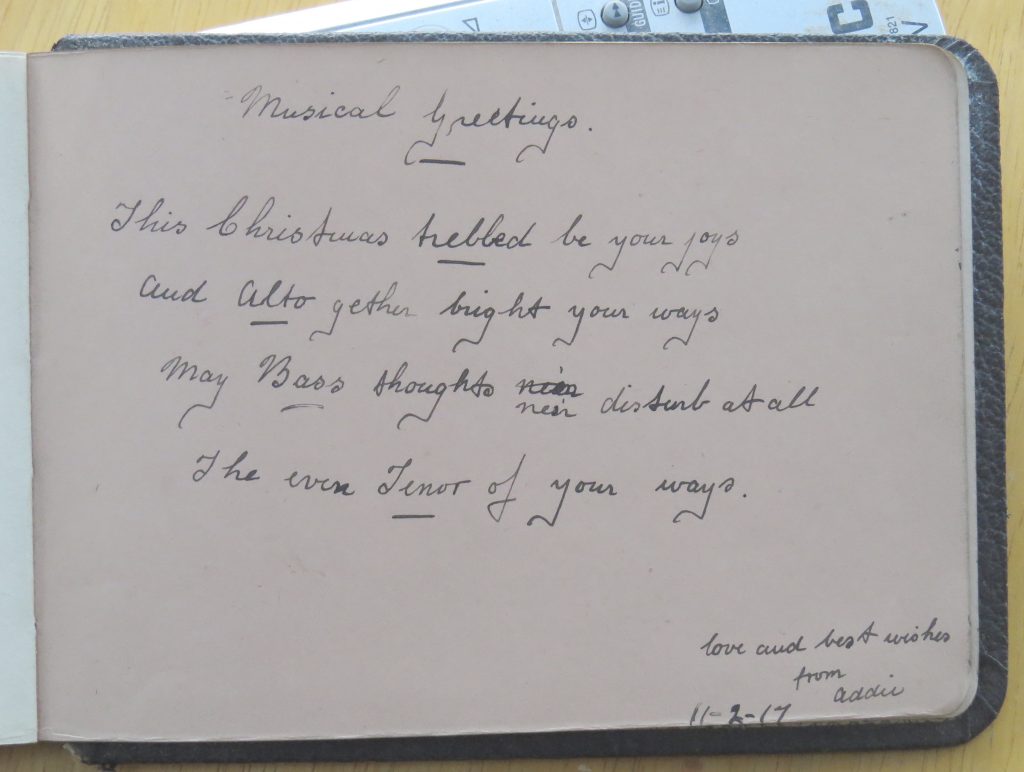 GUID
C
821
Musical Greetings.
This Christmas trebled be your joys
and Alto gether bright your ways
May Bass thoughts ne'er disturb at all
ne'er
The even Tenor of your ways.
love and best wishes
from
addie
11-2-17